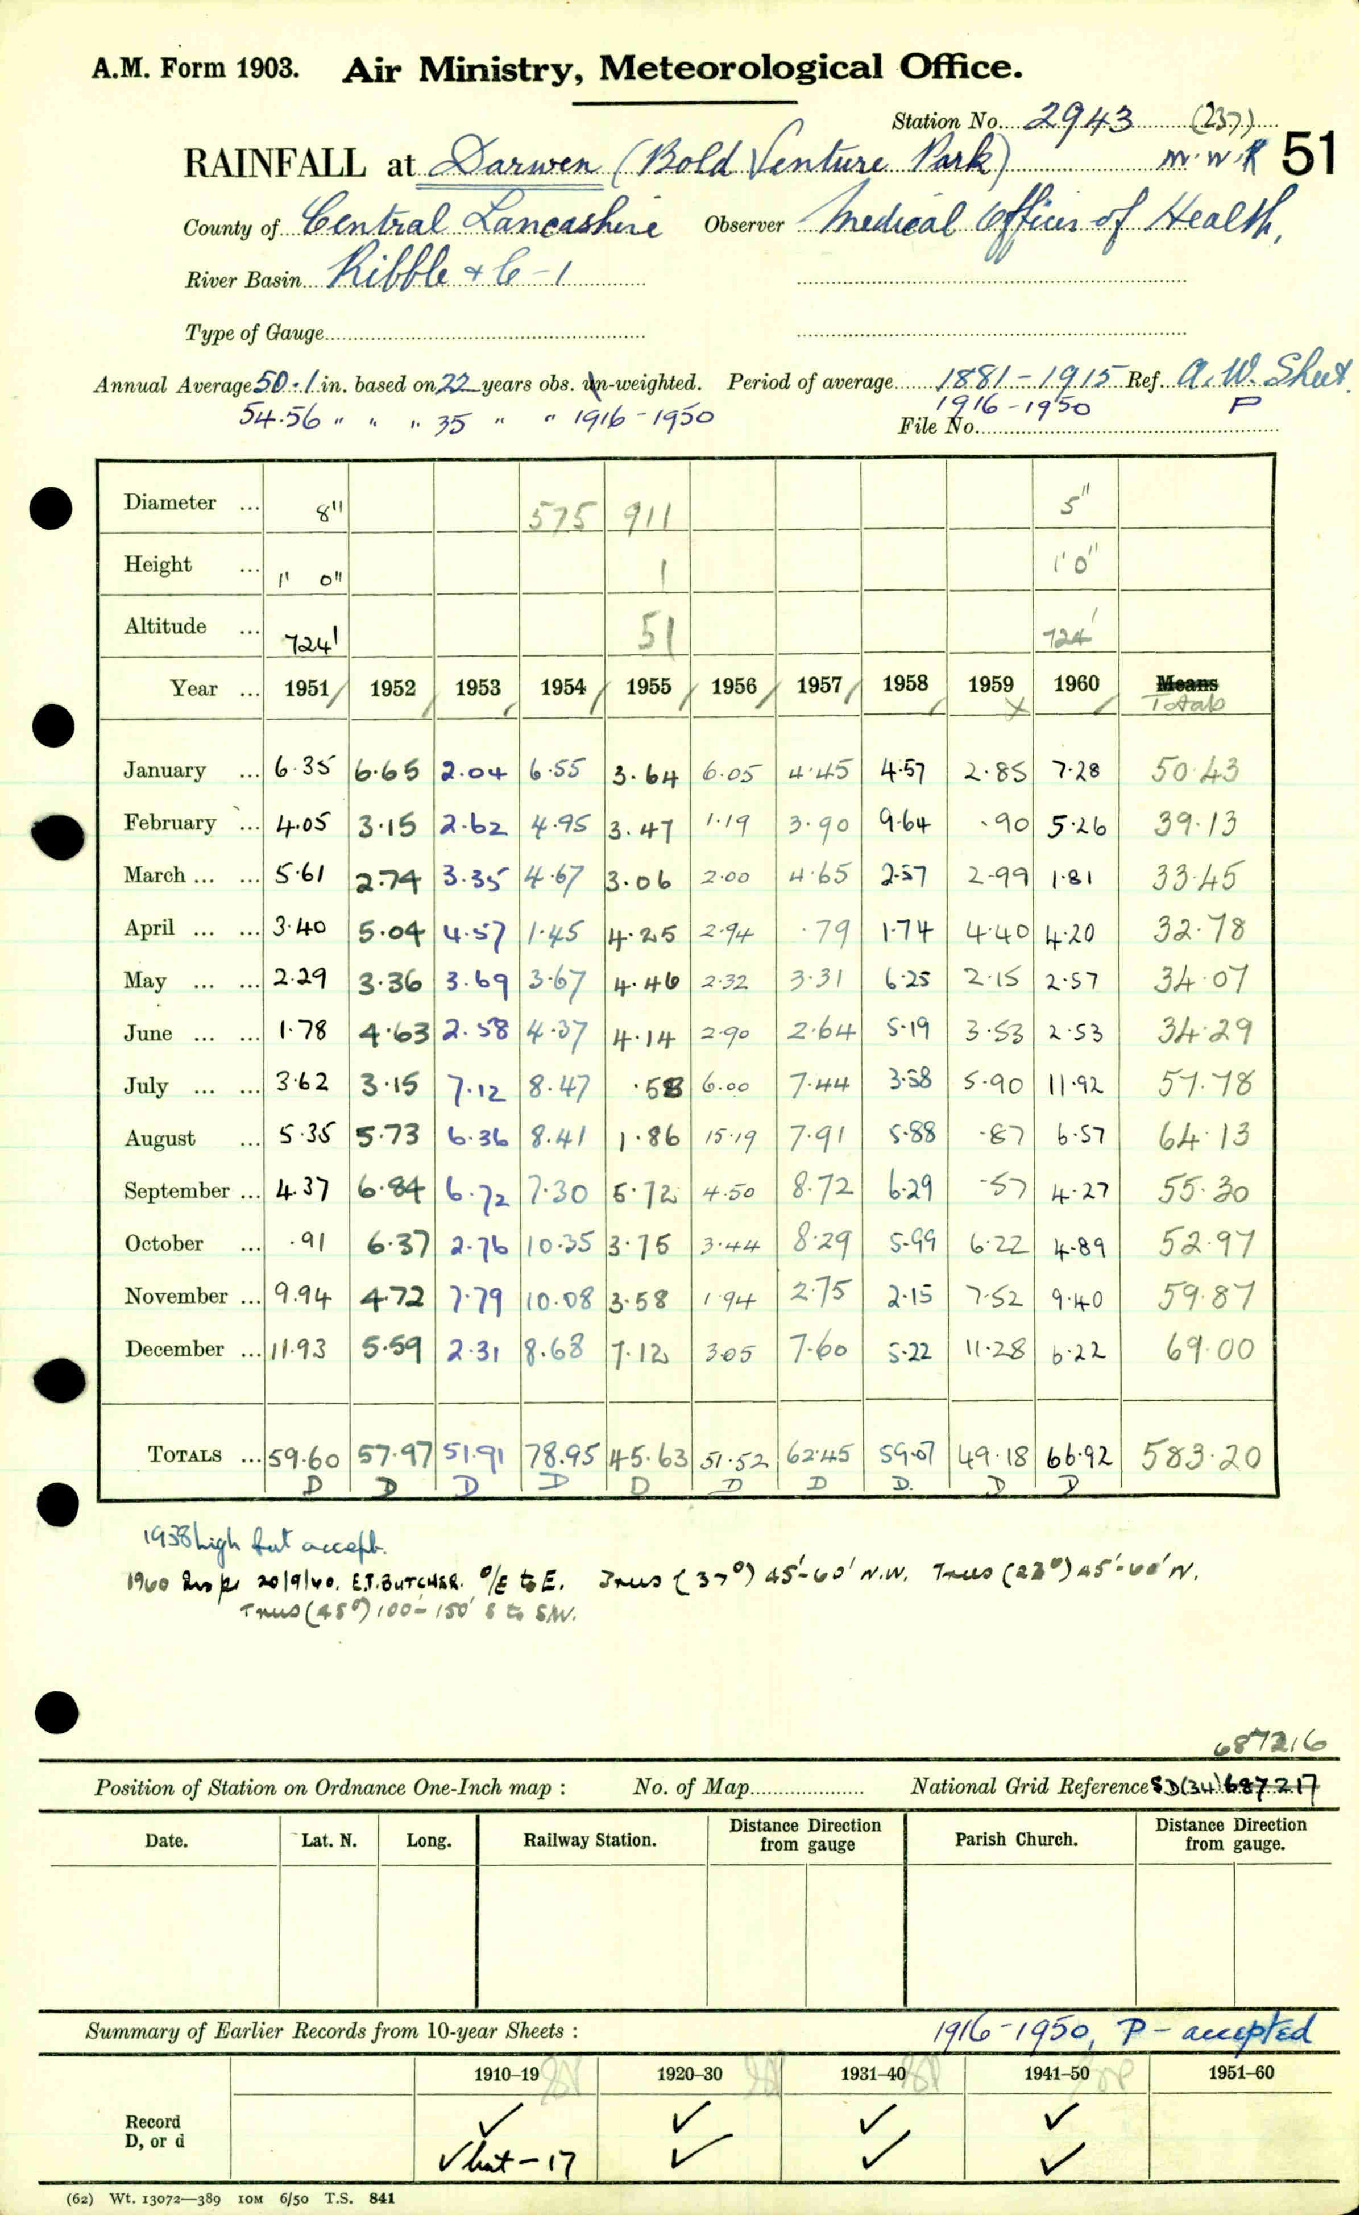 A.M. Form 1903. Air Ministry, Meteorological Office.
Station No. 2943 (237)
RAINFALL at Darwen (Bold Venture Park) M.W.R 51
County of Central Lancashire Observer Medical Officer of Health,
River Basin Ribble & C-1
Type of Gauge
Annual Average 50.1 in. based on 22 years obs. un-weighted. Period of average 1881-1915 Ref. A.W. Sheet
54.56 " " " 35 " " 1916-1950 1916-1950 P
File No.
Diameter ... 8" 575 911 5"
Height ... 1' 0" 1 1' 0"
Altitude ... 724' 51 724'
Year ... 1951 1952 1953 1954 1955 1956 1957 1958 1959 1960 Means
Totals
January ... 6.35 6.65 2.04 6.55 3.64 6.05 4.45 4.57 2.85 7.28 50.43
February ... 4.05 3.15 2.62 4.95 3.47 1.19 3.90 9.64 .90 5.26 39.13
March ... ... 5.61 2.74 3.35 4.67 3.06 2.00 4.65 2.57 2.99 1.81 33.45
April ... ... 3.40 5.04 4.57 1.45 4.25 2.94 .79 1.74 4.40 4.20 32.78
May ... ... 2.29 3.36 3.69 3.67 4.46 2.32 3.31 6.25 2.15 2.57 34.07
June ... ... 1.78 4.63 2.58 4.37 4.14 2.90 2.64 5.19 3.53 2.53 34.29
July ... ... 3.62 3.15 7.12 8.47 .58 6.00 7.44 3.58 5.90 11.92 57.78
August ... 5.35 5.73 6.36 8.41 1.86 15.19 7.91 5.88 .87 6.57 64.13
September ... 4.37 6.84 6.72 7.30 5.72 4.50 8.72 6.29 .57 4.27 55.30
October ... .91 6.37 2.76 10.35 3.75 3.44 8.29 5.99 6.22 4.89 52.97
November ... 9.94 4.72 7.79 10.08 3.58 1.94 2.75 2.15 7.52 9.40 59.87
December ... 11.93 5.59 2.31 8.68 7.12 3.05 7.60 5.22 11.28 6.22 69.00
TOTALS ... 59.60 57.97 51.91 78.95 45.63 51.52 62.45 59.07 49.18 66.92 583.20
D D D D D D D D. D D
1958 high but accept.
1960 Insp 20/9/60. E.T. BUTCHER. O/E to E. Trees (37°) 45'-60' N.W. Trees (23°) 45'-60' N.
Trees (45°) 100'-150' S to S.W.
687216
Position of Station on Ordnance One-Inch map : No. of Map National Grid Reference SD(34) 687217
Date. Lat. N. Long. Railway Station. Distance Direction from gauge Parish Church. Distance Direction from gauge.
Summary of Earlier Records from 10-year Sheets : 1916-1950, P - accepted
1910-19 1920-30 1931-40 1941-50 1951-60
Record ✓ ✓ ✓ ✓
D, or d ✓ but - 17 ✓ ✓ ✓
(62) Wt. 13072—389 10M 6/50 T.S. 841